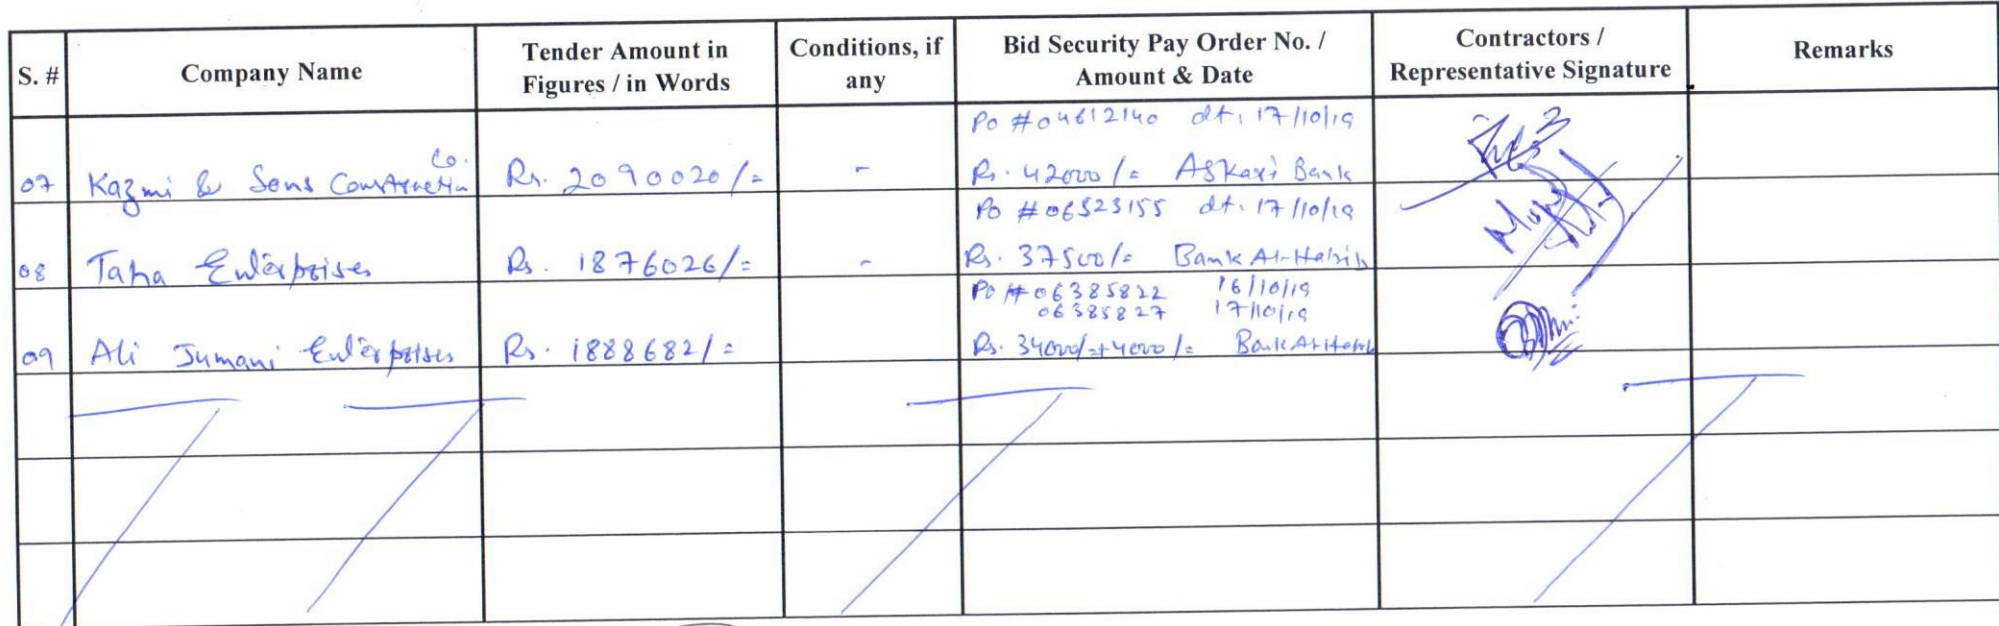 S. #
Company Name
Tender Amount in
Figures / in Words
Conditions, if
any
Bid Security Pay Order No. /
Amount & Date
Contractors /
Representative Signature
Remarks
07
Kazmi & Sons Construction Co.
Rs. 2090020/=
-
Po #04612140 dt: 17/10/19
Rs. 42000/= Askari Bank
08
Taha Enterprises
Rs. 1876026/=
-
Po #06523155 dt: 17/10/19
Rs. 37500/= Bank Al-Habib
09
Ali Jumani Enterprises
Rs. 1888682/=
Po #06385822 16/10/19
06385827 17/10/19
Rs. 34000/=+4000/= Bank Al Habib